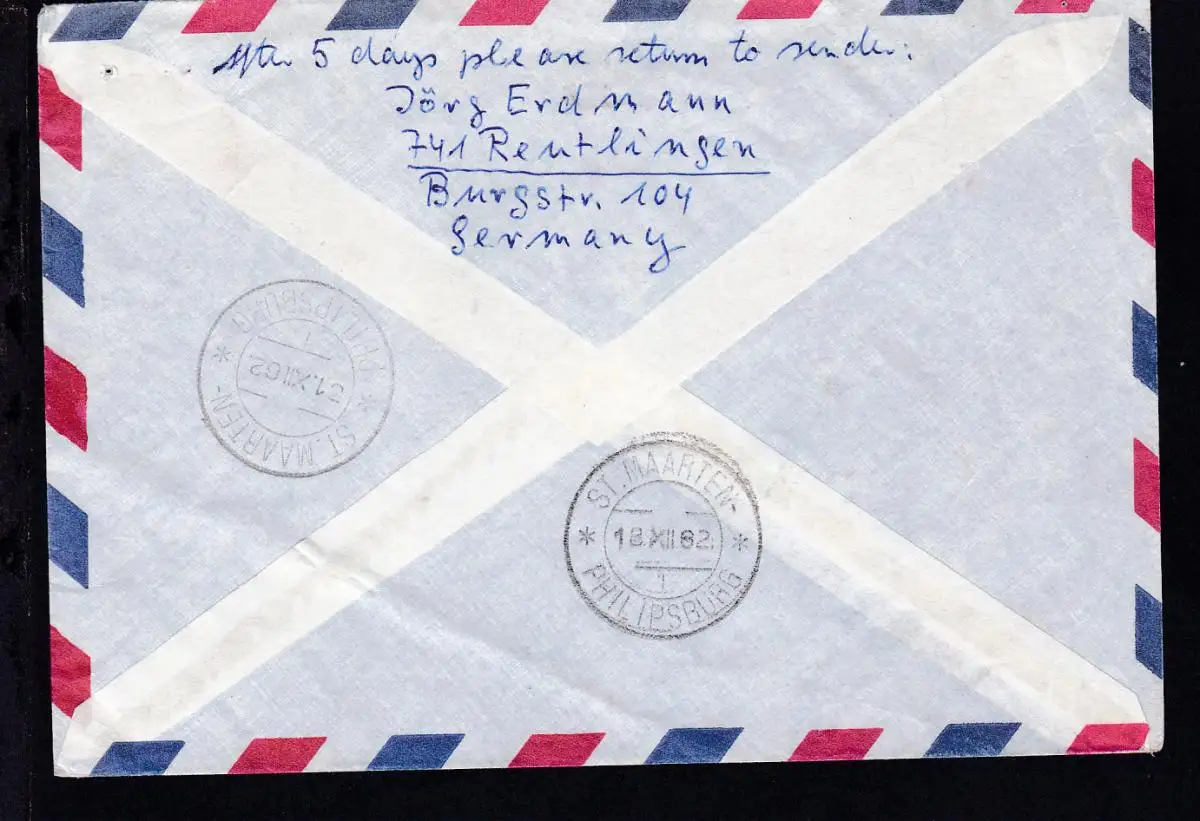 After 5 days please return to sender:
Jörg Erdmann
741 Reutlingen
Burgstr. 104
Germany
ST. MAARTEN-
PHILIPSBURG
31.XII.62
1
ST. MAARTEN-
18.XII.62.
1
PHILIPSBURG